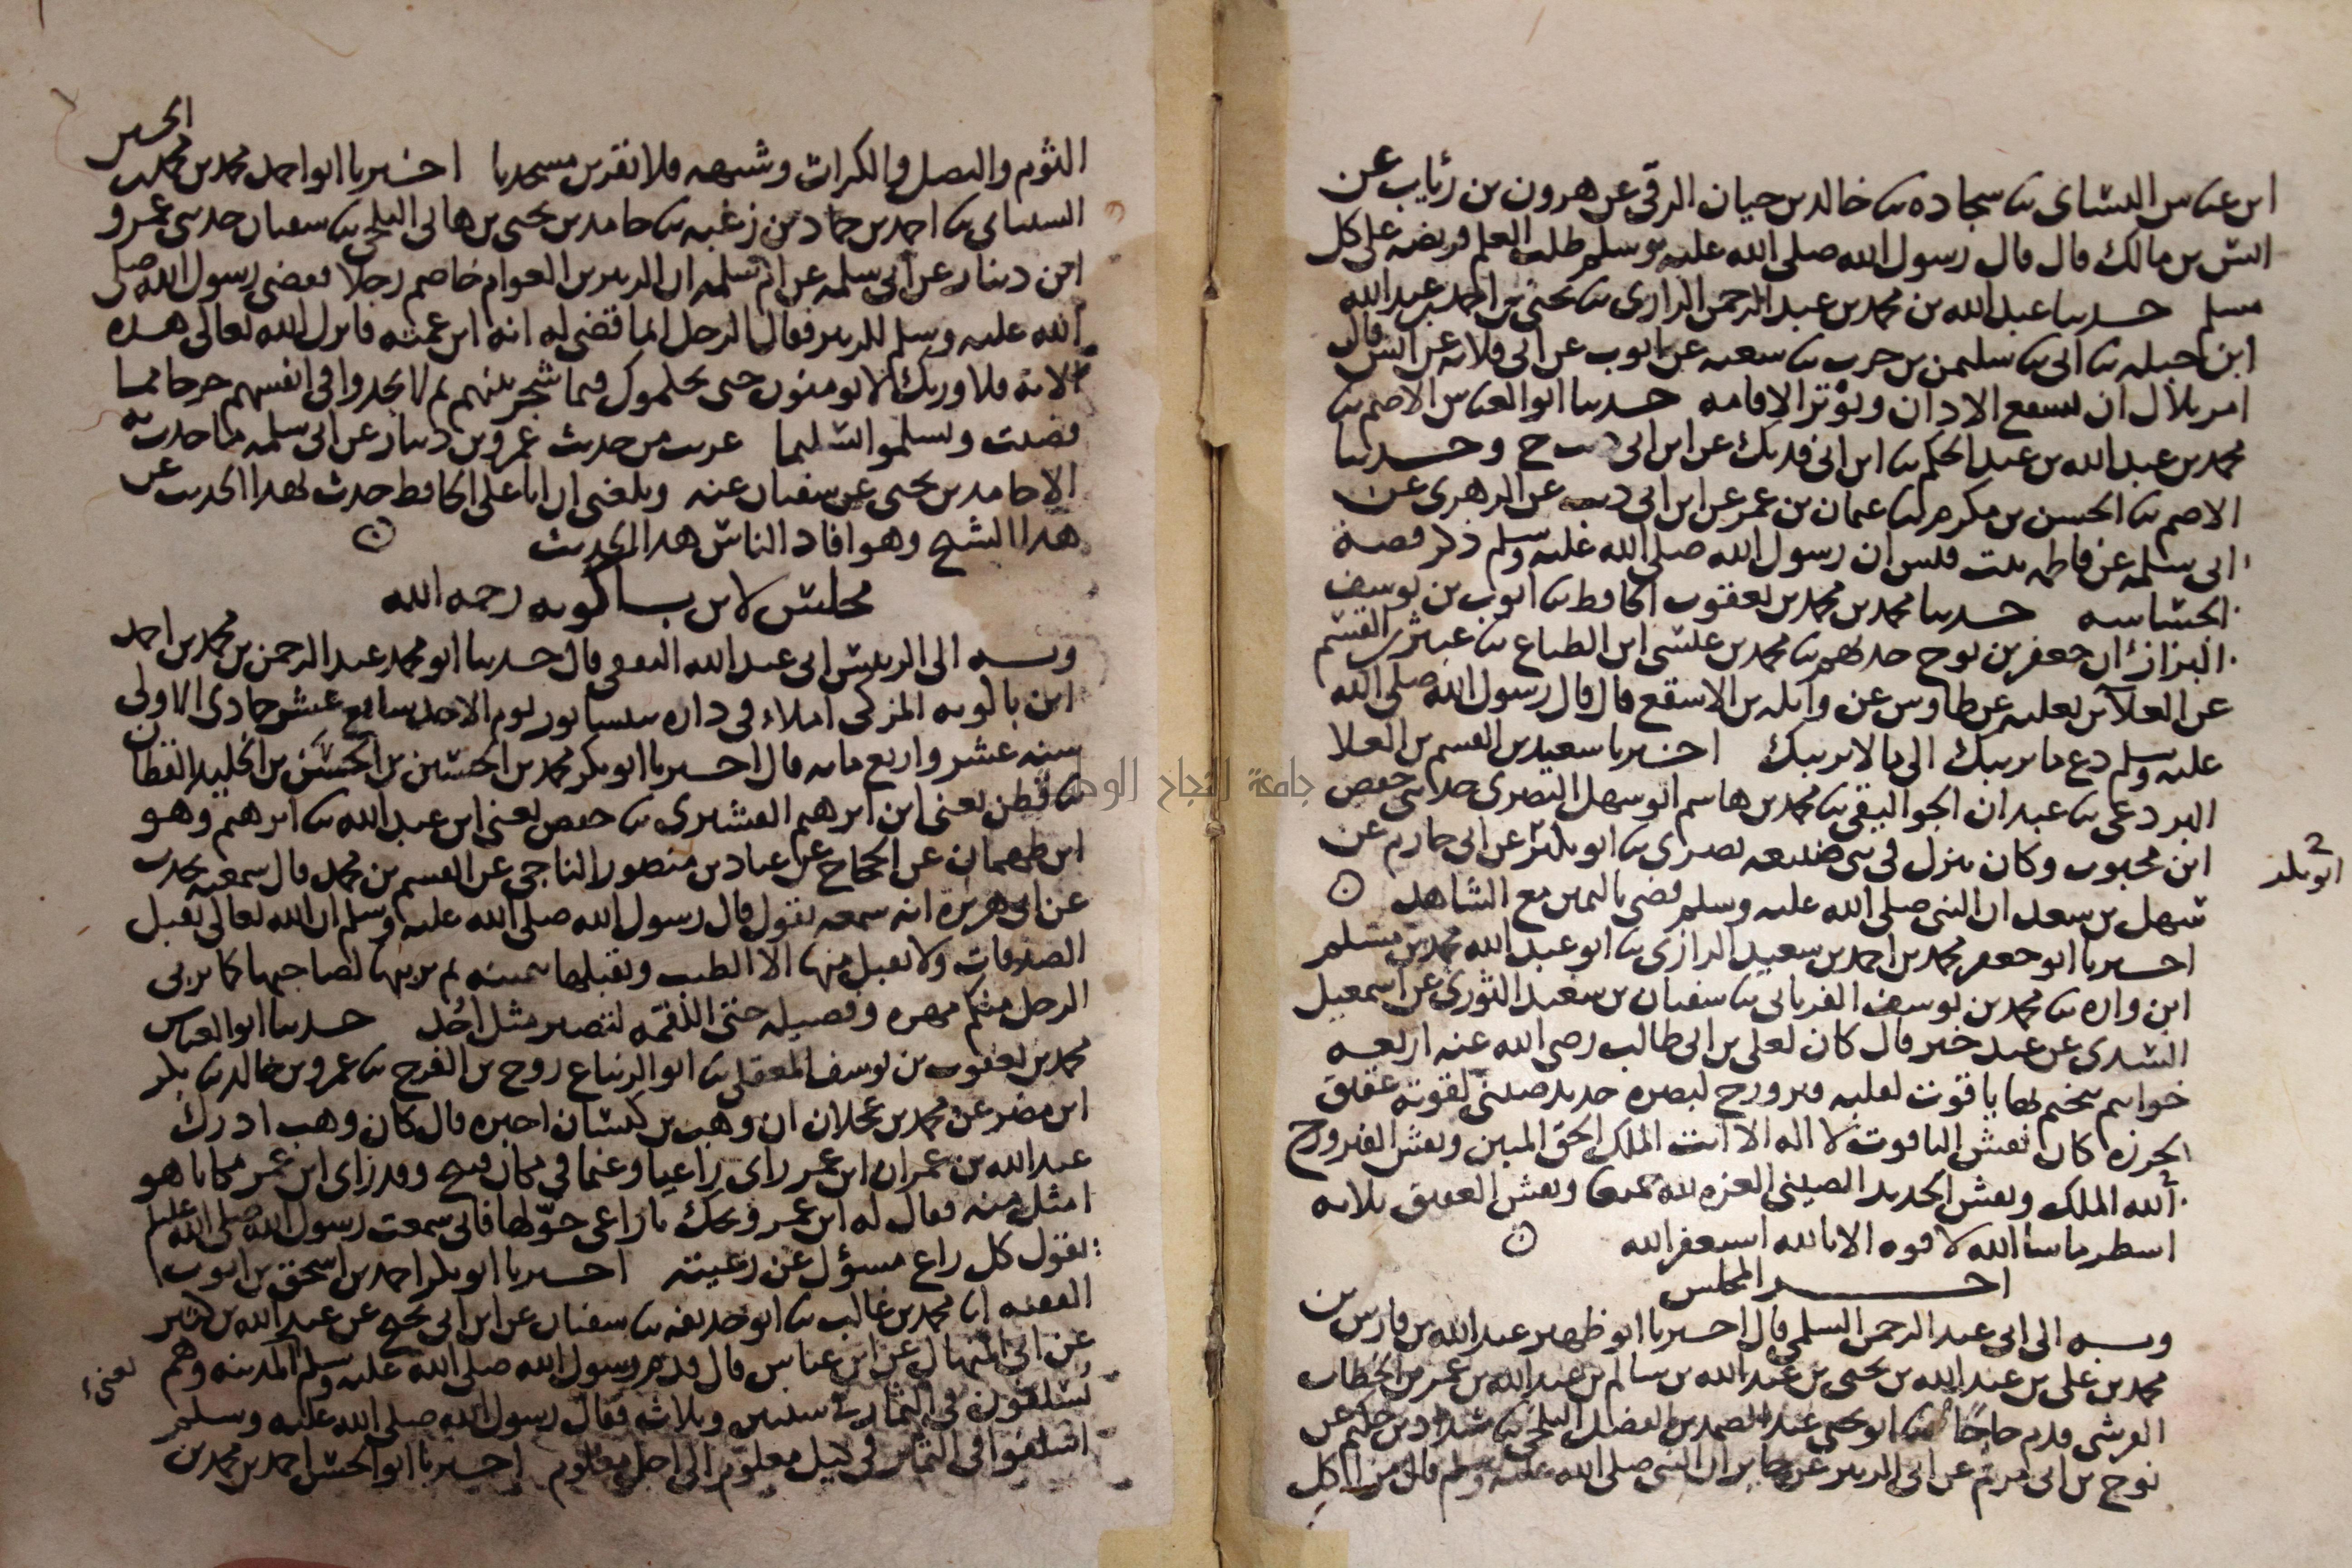 ابن عباس النسائى ىا سجاده ىا خالد بن حيان الرقى عن هرون بن رئاب عن
انس بن مالك قال قال رسول الله صلى الله عليه وسلم طلب العلم فريضه على كل
مسلم حدىىا عبد الله بن محمد بن عبد الرحمن الرازى ىا يحيى بن احمد بن عبد الله
ابن جبله ىا ابى ىا سليمن بن حرب ىا سعبه عن ايوب عن ابى قلابه عن انس قال
امر بلال ان يشفع الاذان ويؤتر الاقامه حدىىا ابو العباس الاصم ىا
محمد بن عبد الله بن عبد الحكم ىا ابن ابى فديك عن ابن ابى ذىب ح وحدىىا
الاصم ىا الحسن بن مكرم ىا عىمان بن عمر عن ابن ابى ذىب عن الزهرى عن
ابى سلمه عن فاطمه بنت قيس ان رسول الله صلى الله عليه وسلم ذكر قصة
الجساسه حدىىا محمد بن محمد بن يعقوب الحافظ ىا ايوب بن يوسف
البزاز ان جعفر بن نوح حدىهم ىا محمد بن عيسى ابن الطباع ىا عبثر بن القسم
عن العلا بن ثعلبه عن طاوس عن واثله بن الاسقع قال قال رسول الله صلى الله
عليه وسلم دع ما يريبك الى ما لا يريبك اخبرىا سعيد بن القسم بن العلا
البردعى ىا عبدان الجواليقى ىا محمد بن هاسم ابو سهل البصرى حدىىى حفص
ابن محبوب وكان ينزل فى بنى ضبيعه بصرى ىا ابو بكر عن ابى حازم عن
سهل بن سعد ان النبى صلى الله عليه وسلم قضى باليمين مع الشاهد ن
ابو بكر
اخبرىا ابو جعفر محمد بن احمد بن سعيد الرازى ىا ابو عبد الله محمد بن مسلم
ابن واره ىا محمد بن يوسف الفريابى ىا سفيان بن سعيد الثورى عن اسمعيل
السدى عن عبد خير قال كان لعلى بن ابى طالب رضى الله عنه اربعه
خواتيم يتختم بها ياقوت لقلبه وفيروزج لبصره حديد صينى لقوته عقيق
لحرزه كان نقش الياقوت لا اله الا الله الملك الحق المبين ونقش الفيروزج
الله الملك ونقش الحديد الصينى العزه لله جميعا ونقش العقيق ثلاثه
اسطر ما شا الله لا قوه الا بالله استغفر الله ن
اخــر المجلس
وبــه الى ابى عبد الرحمن السلمى قال اخبرىا ابو ظهير عبد الله بن فارس بن
محمد بن على بن عبد الله بن يحيى بن عبد الله بن سالم بن عبد الله بن عمر بن الخطاب
القرشى قدم حاجا ىا ابو يحيى عبد الصمد بن الفضل البلخى ىا شداد بن حكيم عن
نوح بن ابى مريم عن ابى الزبير عن جابر ان النبى صلى الله عليه وسلم قال من اكل
الثوم والبصل والكراث وشبهه فلا يقربن مسجدنا اخبرىا ابو احمد محمد بن محمد بن الحسين
السىىانى ىا احمد بن حماد بن زغبه ىا حامد بن يحيى بن هانى البلخى ىا سفيان حدىىى عمرو
ابن دينار عن ابى سلمه عن ام سلمه ان الزبير بن العوام خاصم رجلا فقضى رسول الله صلى
الله عليه وسلم للزبير فقال الرجل انما قضى له انه ابن عمته فانزل الله تعالى هذه
الايه فلا وربك لا يومنون حتى يحكموك فيما شجر بينهم ثم لا يجدوا فى انفسهم حرجا مما
قضيت ويسلموا تسليما غريب من حديث عمرو بن دينار عن ابى سلمه ما حدث به
الا حامد بن يحيى عن سفيان عنه وبلغنى ان ابا على الحافظ حدث بهذا الحديث عن
هذا الشيخ وهو افاد الناس هذا الحديث ن
مجلس لابن بــاكويه رحمه الله
وبــه الى الرئيس ابى عبد الله الثقفى قال حدىىا ابو محمد عبد الرحمن بن محمد بن احمد
ابن بالويه المزكى املاء فى داره بنيسابور يوم الاحد سابع عشر جمادى الاولى
سنه عشر واربع مايه قال اخبرىا ابو بكر محمد بن الحسين بن الحسن بن الخليل القطان
ىا قطن يعنى ابن ابرهيم القشيرى ىا حفص يعنى ابن عبد الله ىا ابرهيم وهو
ابن طهمان عن الحجاج عن عباد بن منصور الناجى عن القسم بن محمد قال سمعته يحدث
عن ابى هريرة انه سمعه يقول قال رسول الله صلى الله عليه وسلم ان الله تعالى يقبل
الصدقات ولا يقبل منها الا الطيب ويقبلها بيمينه ثم يربيها لصاحبها كما يربى
الرجل منكم مهره وفصيله حتى اللقمه لتصير مثل احد حدىىا ابو العباس
محمد بن يعقوب بن يوسف المعقلى ىا ابو الزنباع روح بن الفرج ىا عمرو بن خالد ىا بكر
ابن مضر عن محمد بن عجلان ان وهب بن كيسان اخبره قال كان وهب ادرك
عبد الله بن عمر ان ابن عمر راى راعيا وغنما فى مكان قبيح وقد راى ابن عمر مكانا هو
امثل منه فقال له ابن عمر ويحك يا راعى حولها فانى سمعت رسول الله صلى الله عليه
يقول كل راع مسؤل عن رعيته اخبرىا ابو بكر احمد بن اسحق بن ايوب
الفقيه انا محمد بن غالب ىا ابو حذيفه ىا سفيان عن ابن ابى نجيح عن عبد الله بن كثير
عن ابى المنهال عن ابن عباس قال قدم رسول الله صلى الله عليه وسلم المدينه وهم
يعنى
يسلفون فى الثمار سنتين وثلاثه فقال رسول الله صلى الله عليه وسلم
اسلفوا فى الثمار فى كيل معلوم الى اجل معلوم اخبرىا ابو الحسن احمد بن محمد بن
جامعة النجاح الوط